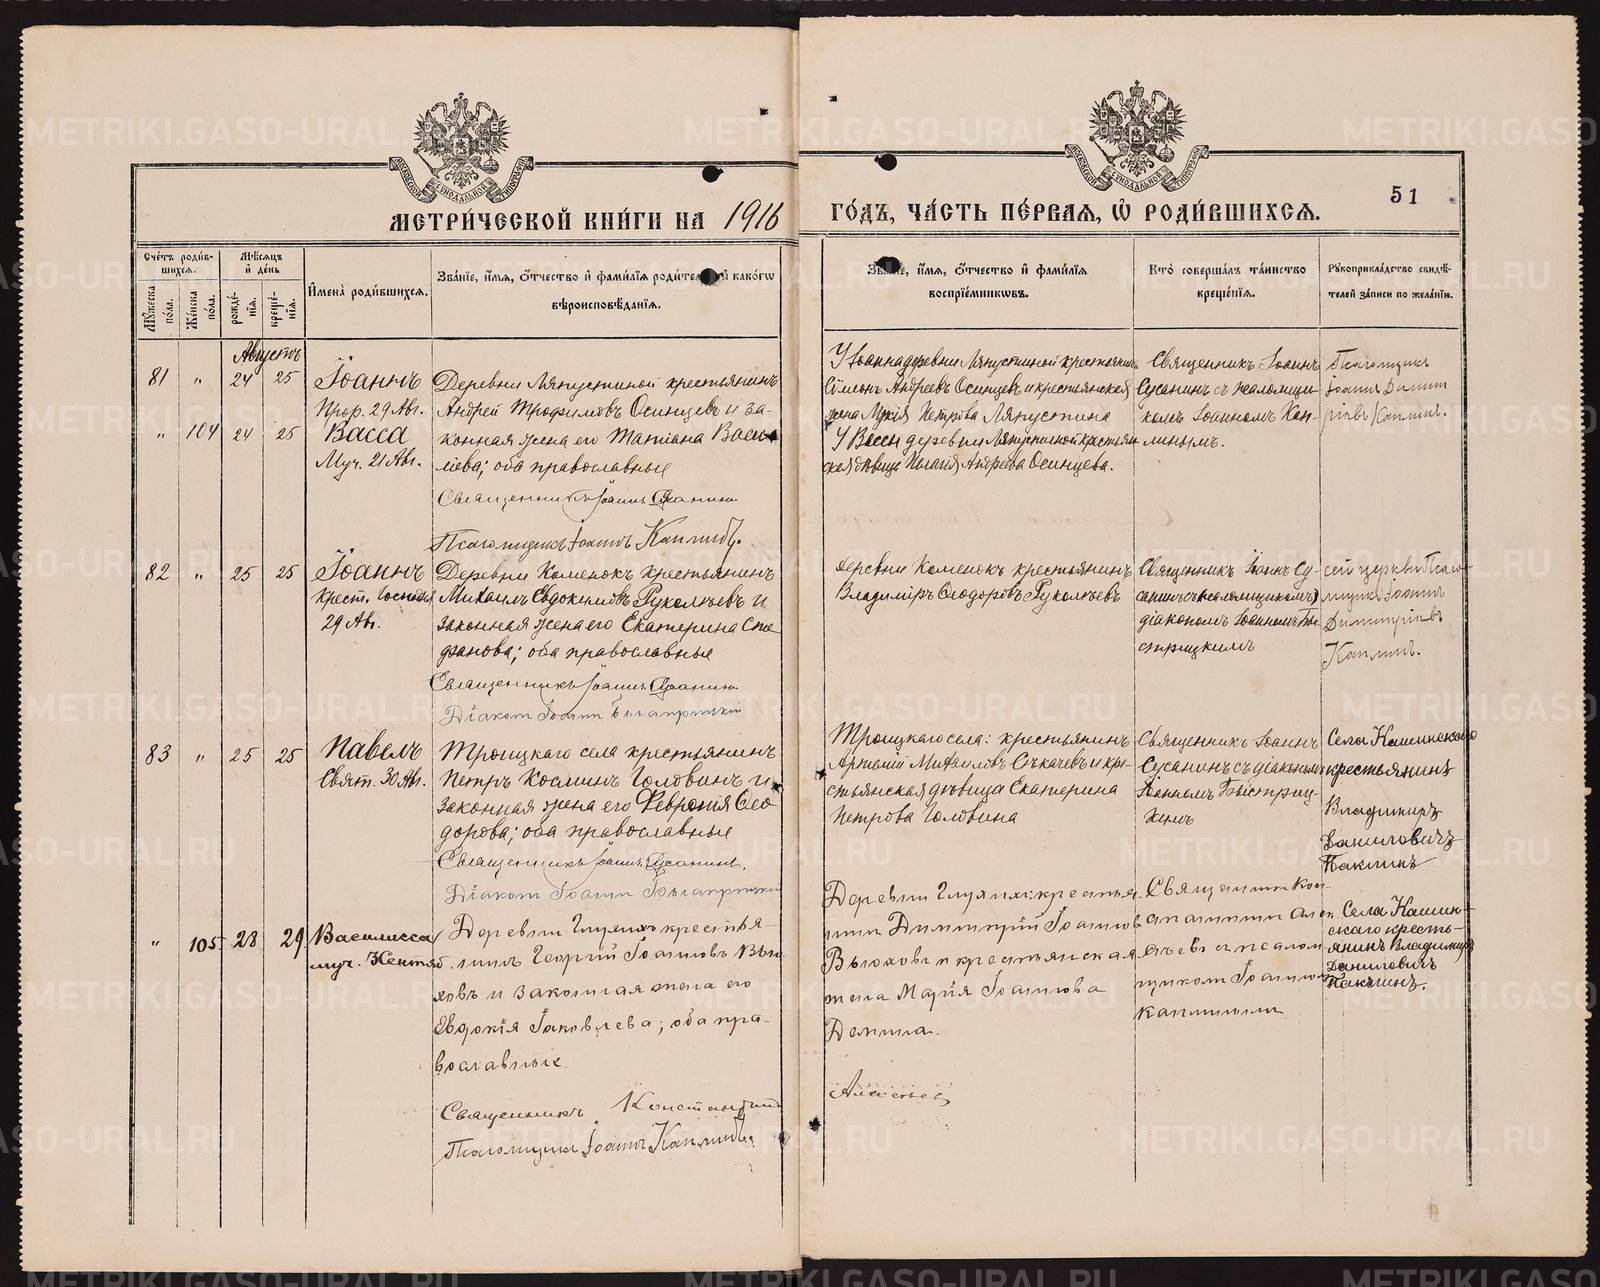 МЕТРИ́ЧЕСКОЙ КНИ́ГИ НА 1916
ГО́ДЪ, ЧА́СТЬ ПЕ́РВАЯ, Ѡ҆ РОДИ́ВШИХСЯ.
51
Сче́тъ роди́в-
шихся.
Мѣ́сяцъ
и҆ де́нь
Мꙋ́жеска
по́ла.
Же́нска
по́ла.
рожде́-
нїя.
креще́-
нїя.
И҆мена̀ роди́вшихся.
Зва́нїе, и҆́мя, ѻ҆́тчество и҆ фами́лїя роди́телей и҆ како́гѡ
вѣроисповѣ́данїя.
Зва́нїе, и҆́мя, ѻ҆́тчество и҆ фами́лїя
воспрїе́мникѡвъ.
Кто̀ соверша́лъ та́инство
креще́нїя.
Рꙋкоприкла́дство свидѣ́-
телей за́писи по жела́нїю.
Августъ
81 " 24 25
Іоаннъ
Прор. 29 Авг.
" 104 24 25
Васса
Муч. 21 Авг.
Деревни Ляпустиной крестьянинъ
Андрей Трофимовъ Осинцевъ и за-
конная жена его Татіана Васи-
ліева; оба православные
Священникъ Іоаннъ Сусанинъ
Псаломщикъ Іоаннъ Каплинъ.
У Іоанна деревни Ляпустиной крестьянинъ
Симеонъ Андреевъ Осинцевъ и крестьянская
жена Лукія Петрова Ляпустина
У Вассы деревни Ляпустиной крестьян
ская дѣвица Пелагія Андреева Осинцева.
Священникъ Іоаннъ
Сусанинъ съ псаломщи-
комъ Іоанномъ Кап-
линымъ.
Псаломщикъ
Іоаннъ Димит
ріевъ Каплинъ.
82 " 25 25
Іоаннъ
Крест. Господня
29 Авг.
Деревни Каменокъ крестьянинъ
Михаилъ Евдокимовъ Рукомѣевъ и
законная жена его Екатерина Сте-
фанова; оба православные
Священникъ Іоаннъ Сусанинъ
Діаконъ Іоаннъ Быстрицкій
деревни Каменокъ крестьянинъ
Владиміръ Ѳеодоровъ Рукомѣевъ
Священникъ Іоаннъ Су-
санинъ съ псаломщикомъ
діакономъ Іоанномъ Бы-
стрицкимъ
сей церкви Псало-
мщикъ Іоаннъ
Димитріевъ
Каплинъ.
83 " 25 25
Павелъ
Свят. 30 Авг.
Троицкаго села крестьянинъ
Петръ Косминъ Головинъ и
законная жена его Февронія Ѳео-
дорова; оба православные
Священникъ Іоаннъ Сусанинъ.
Діаконъ Іоаннъ Быстрицкій
Троицкаго села: крестьянинъ
Артемій Михаиловъ Сѣкачевъ и кре-
стьянская дѣвица Екатерина
Петрова Головина
Священникъ Іоаннъ
Сусанинъ съ діакономъ
Іоанномъ Быстриц-
кимъ
Села Кашинскаго
крестьянинъ
Владимиръ
Даниловичъ
Паклинъ
" 105 28 29
Василисса
муч. 3 Сентяб.
Деревни Глухихъ крестья-
нинъ Георгій Іоанновъ Вью-
ховъ и законная жена его
Евдокія Іаковлева; оба пра-
вославные.
Священникъ Константинъ
Алексѣевъ
Псаломщикъ Іоаннъ Каплинъ.
Деревни Глухихъ: крестья-
нинъ Димитрій Іоанновъ
Вьюховъ и крестьянская
жена Марія Іоаннова
Демина.
Священникъ Кон-
стантинъ Алек-
сѣевъ съ псалом-
щикомъ Іоанномъ
Каплинымъ
Села Кашин-
скаго кресть-
янинъ Владимиръ
Даниловичъ
Паклинъ.